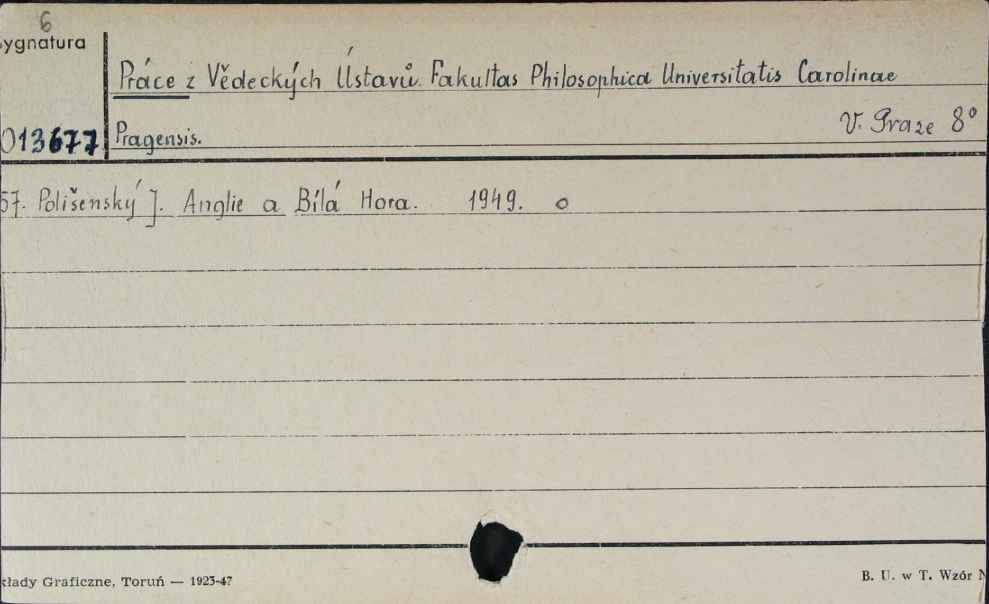 6
ygnatura
Práce z Vědeckých Ústavů. Fakultas Philosophica Universitatis Carolinae
013677 Pragensis. V. Praze 8°
57. Polišenský J. Anglie a Bílá Hora. 1949. o
kłady Graficzne, Toruń — 1923-47
B. U. w T. Wzór N